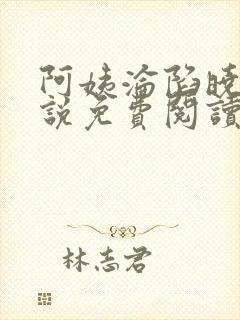 阿姨淪陷曉
說免費閱讀
林志君